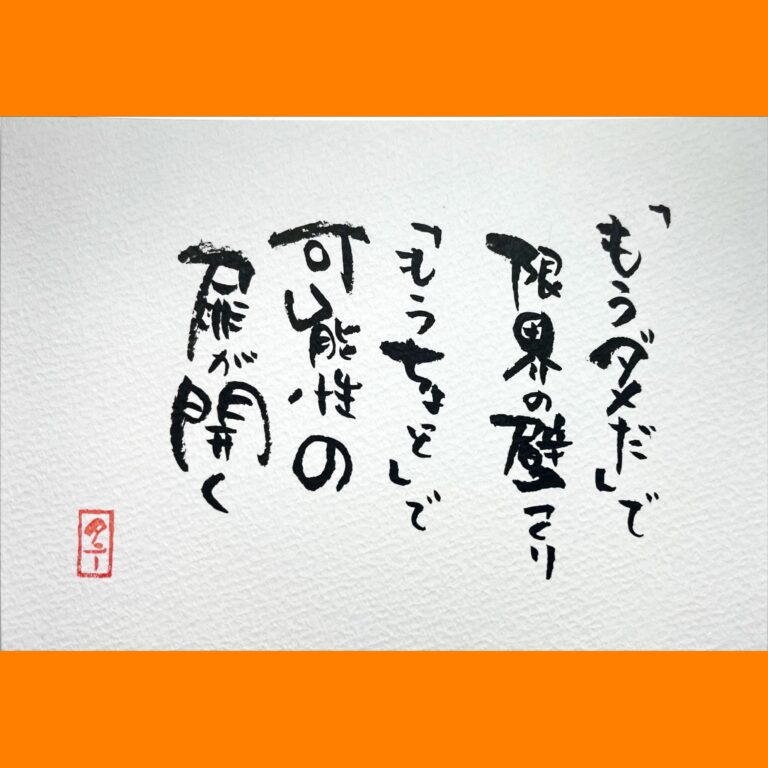 「もうダメだ」で
限界の壁つくり
「もうちょっと」で
可能性の
扉が開く